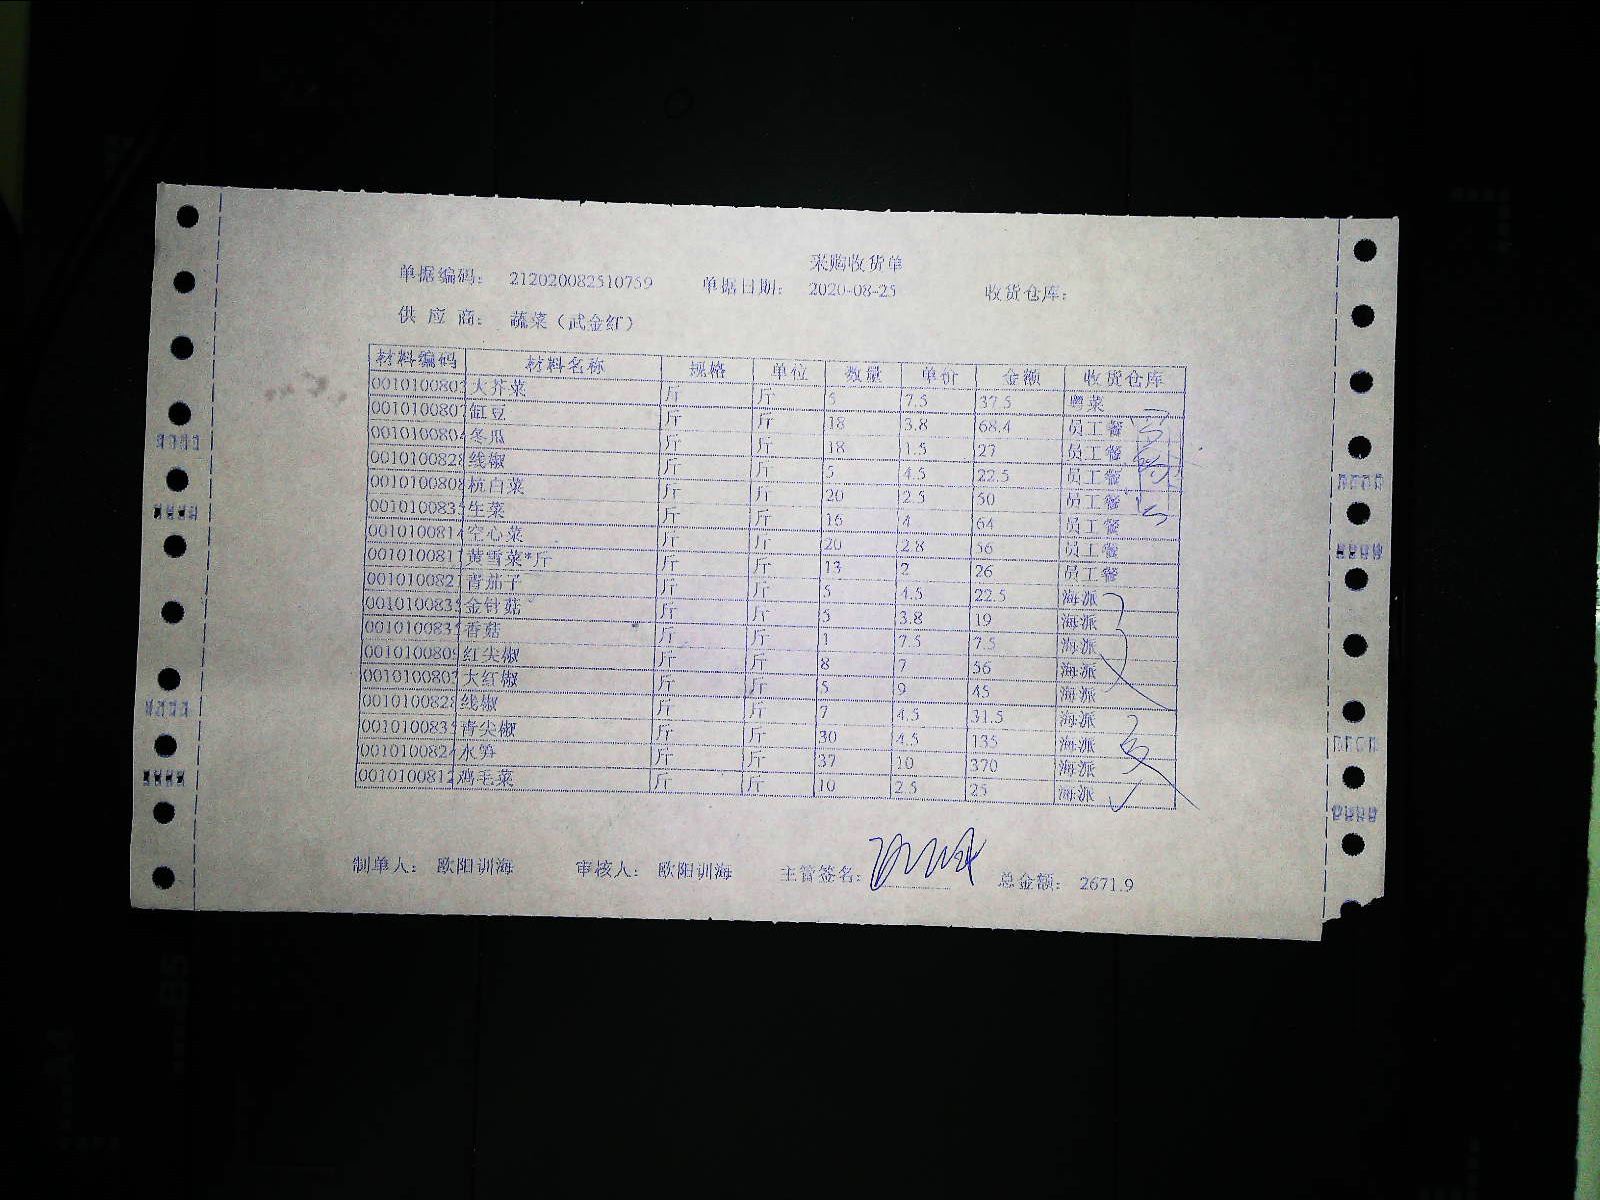 采购收货单
单据编码： 212020082510759 单据日期： 2020-08-25 收货仓库：
供 应 商： 蔬菜（武金红）
材料编码 材料名称 规格 单位 数量 单价 金额 收货仓库
0010100803 大芥菜 斤 斤 5 7.5 37.5 粤菜
0010100807 缸豆 斤 斤 18 3.8 68.4 员工餐
0010100804 冬瓜 斤 斤 18 1.5 27 员工餐
0010100828 线椒 斤 斤 5 4.5 22.5 员工餐
0010100808 杭白菜 斤 斤 20 2.5 50 员工餐
0010100835 生菜 斤 斤 16 4 64 员工餐
0010100814 空心菜 斤 斤 20 2.8 56 员工餐
0010100811 黄雪菜*斤 斤 斤 13 2 26 员工餐
001010082 青茄子 斤 斤 5 4.5 22.5 海派
0010100835 金针菇 斤 斤 5 3.8 19 海派
001010083 香菇 斤 斤 1 7.5 7.5 海派
0010100809 红尖椒 斤 斤 8 7 56 海派
0010100803 大红椒 斤 斤 5 9 45 海派
0010100828 线椒 斤 斤 7 4.5 31.5 海派
001010083 青尖椒 斤 斤 30 4.5 135 海派
0010100824 水笋 斤 斤 37 10 370 海派
0010100812 鸡毛菜 斤 斤 10 2.5 25 海派
制单人： 欧阳训海 审核人： 欧阳训海 主管签名： 总金额： 2671.9